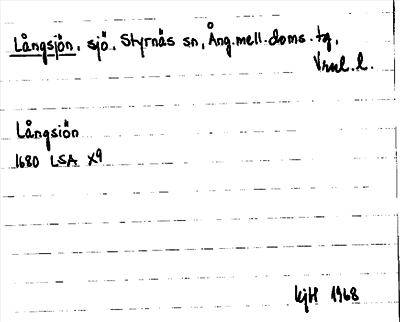 Långsjön, sjö, Styrnäs sn, Ång.mell.doms.tg,
Vrnl.l.
Långsiön
1680 LSA X9
KjH 1968